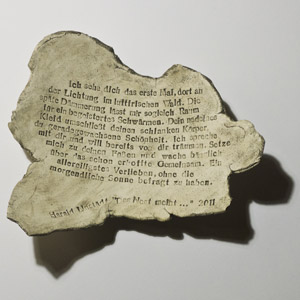 Ich sehe dich das erste Mal, dort an
der Lichtung im luftfrischen Wald. Die
späte Dämmerung lässt mir sogleich Raum
für ein begeistertes Schwärmen. Dein
Kleid umschließt deinen schlanken Körper,
gewachsenen Schönheit. Ich spreche
mit dir und will bereits von dir träumen. Setze
mich zu deinen Füßen und wache
über das schon erhoffte Gemeinsam. Ein
allereiligstes Verlieben, ohne die
morgendliche Sonne befragt zu haben.
Harald "Der Nest ..." 2011